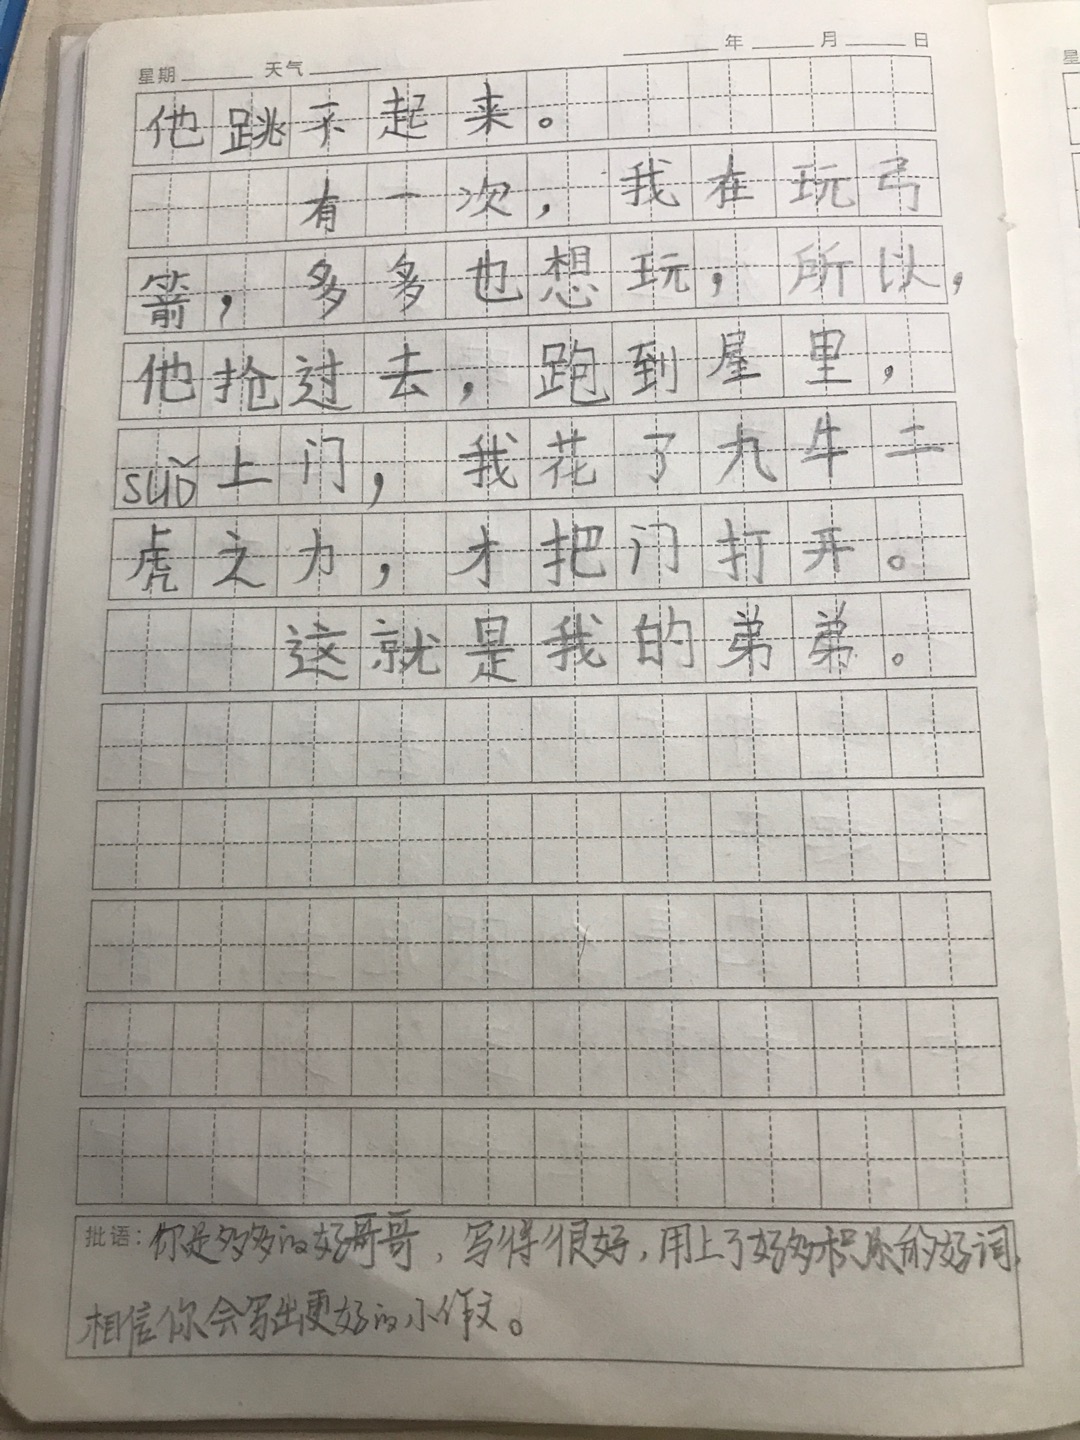 星期 天气 年 月 日
他跳不起来。
有一次，我在玩弓
箭，多多也想玩，所以，
他抢过去，跑到屋里，
suǒ上门，我花了九牛二
虎之力，才把门打开。
这就是我的弟弟。
批语：你是多多的好哥哥，写得很好，用上了好多积累的好词，
相信你会写出更好的小作文。